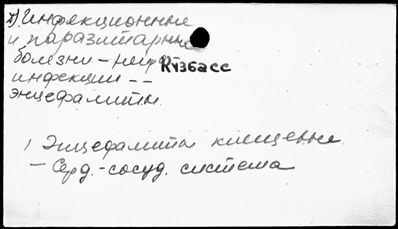 х). Инфекционные
и паразитарные
болезни - нейро
Кузбасс
инфекции --
энцефалиты.
1 Энцефалиты клещевые.
- Серд.-сосуд. система